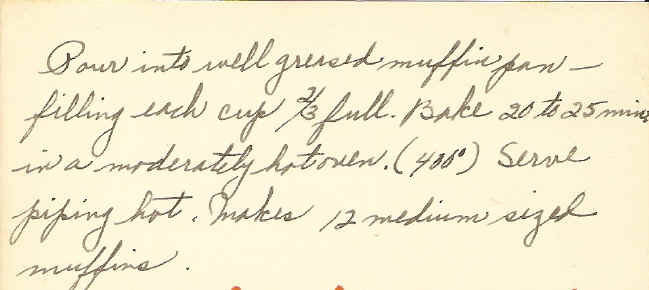 Pour into well greased muffin pan –
filling each cup 2/3 full. Bake 20 to 25 mins
in a moderately hot oven. (400°) Serve
piping hot. Makes 12 medium sized
muffins.